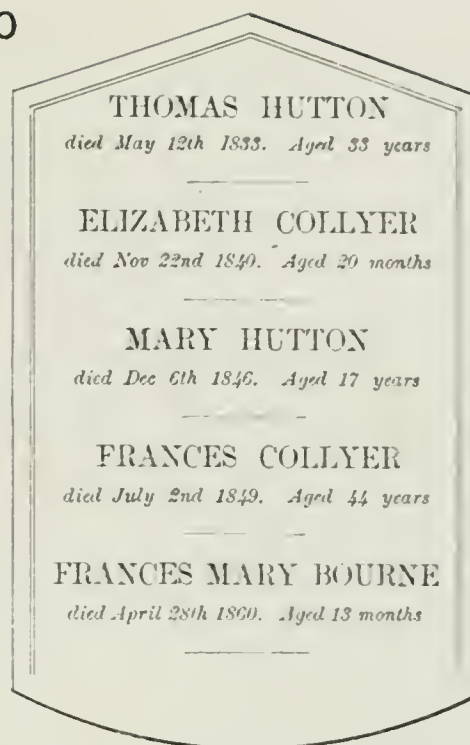 THOMAS HUTTON
died May 12th 1833. Aged 33 years
ELIZABETH COLLYER
died Nov 22nd 1840. Aged 20 months
MARY HUTTON
died Dec 6th 1846. Aged 17 years
FRANCES COLLYER
died July 2nd 1849. Aged 44 years
FRANCES MARY BOURNE
died April 28th 1860. Aged 13 months